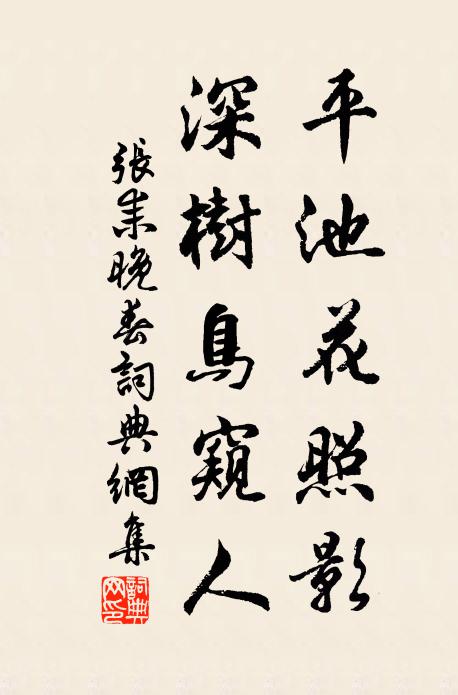 平池花照影
深樹鳥窺人
張耒晚春詞典網集
詞典网印